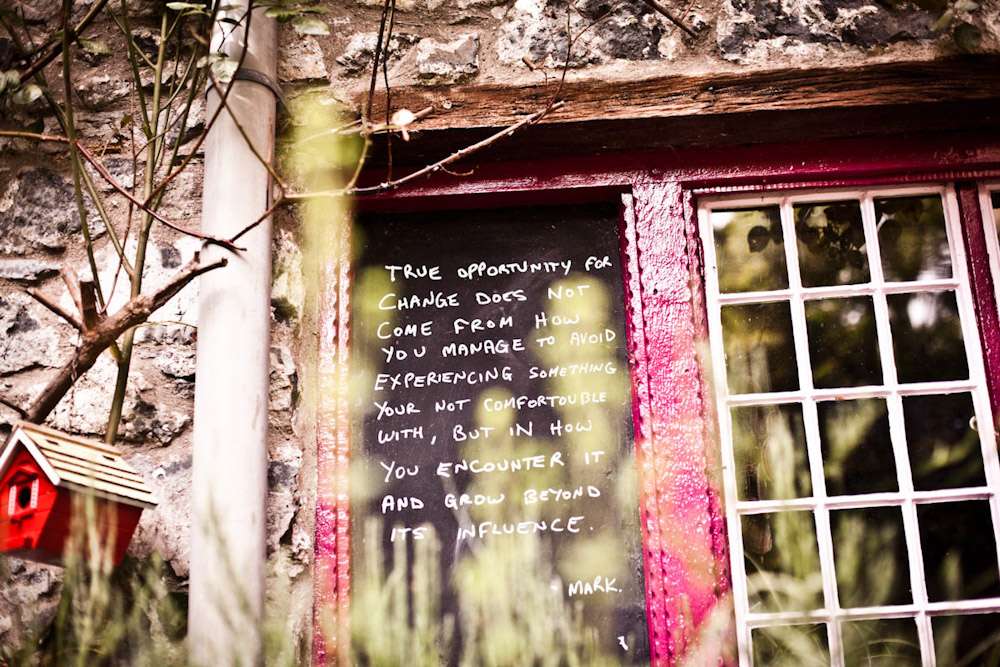 TRUE OPPORTUNITY FOR
CHANGE DOES NOT
COME FROM HOW
YOU MANAGE TO AVOID
EXPERIENCING SOMETHING
YOUR NOT COMFORTOUBLE
WITH, BUT IN HOW
YOU ENCOUNTER IT
AND GROW BEYOND
ITS INFLUENCE.
MARK.